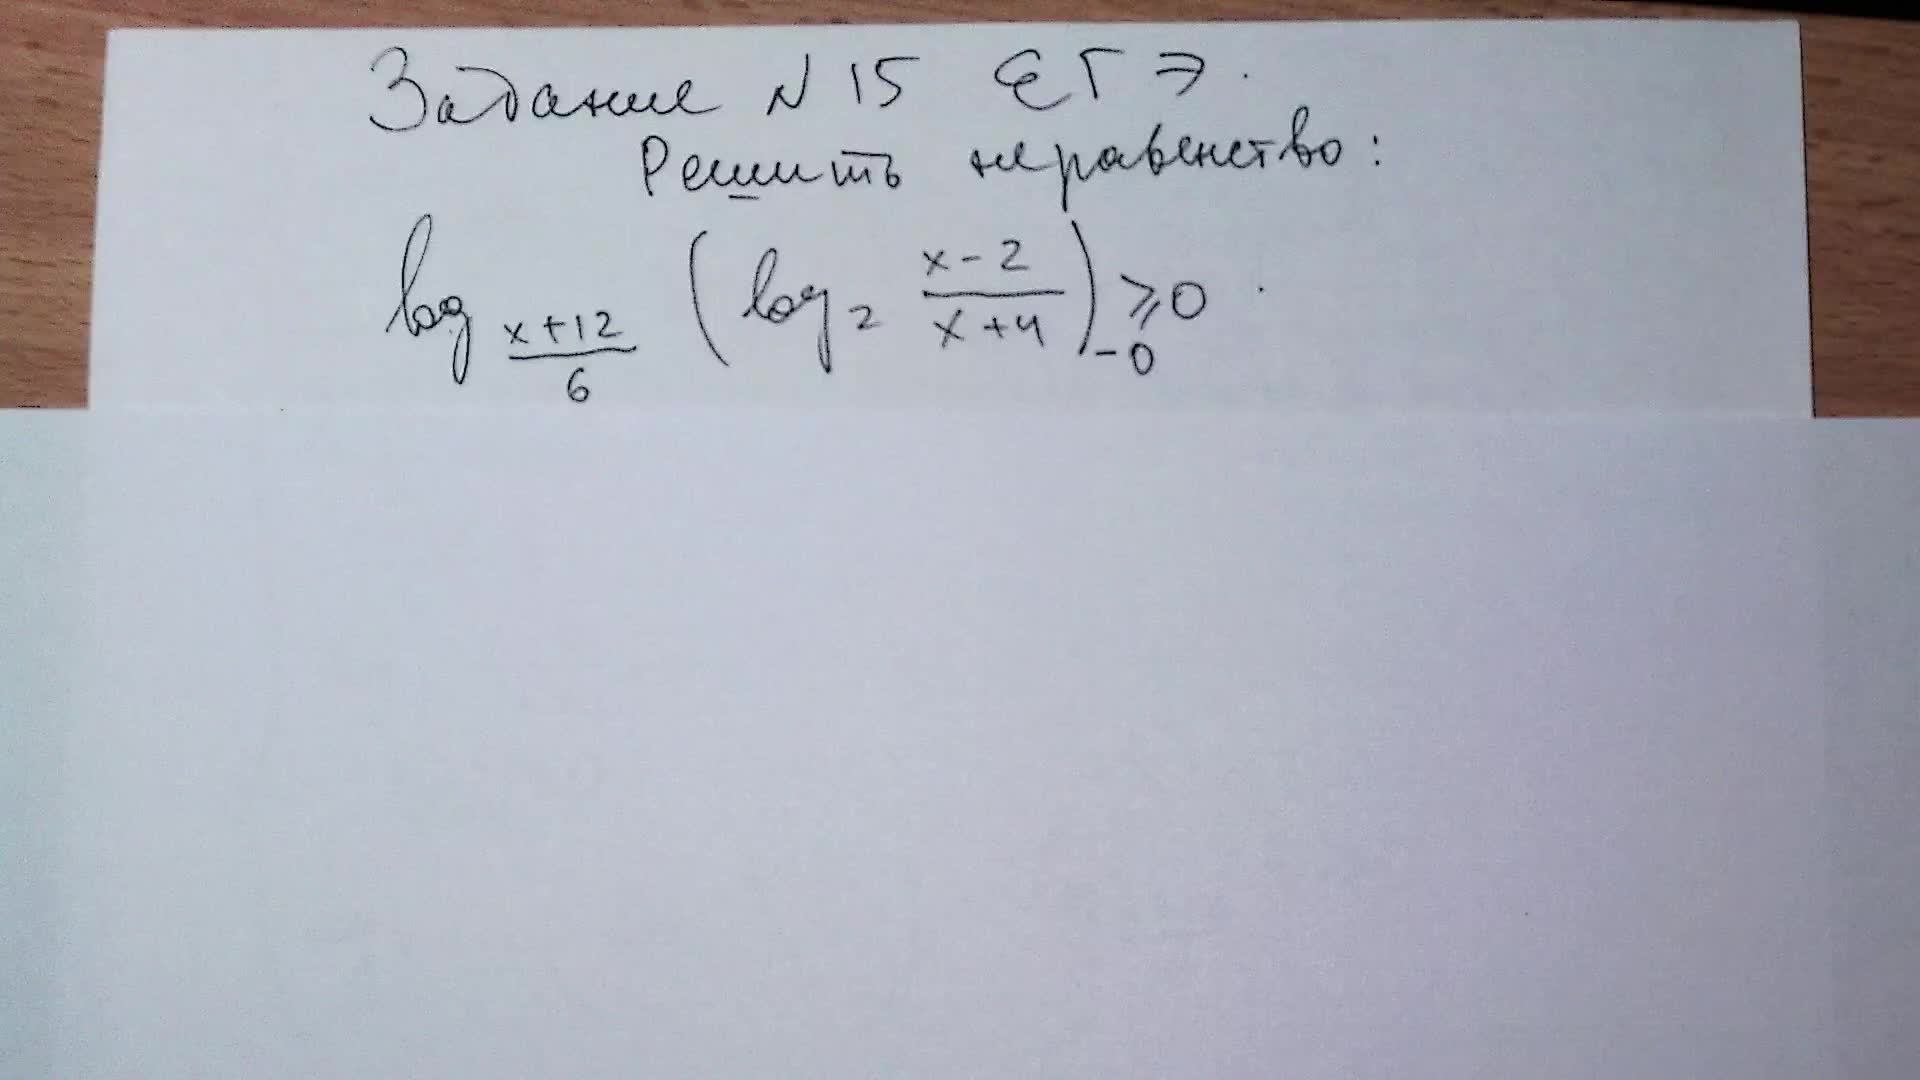 Задание N 15 ЕГЭ.
Решить неравенство:
log_{\frac{x+12}{6}} ( log_2 \frac{x-2}{x+4} )_{-0} ⩾ 0 .